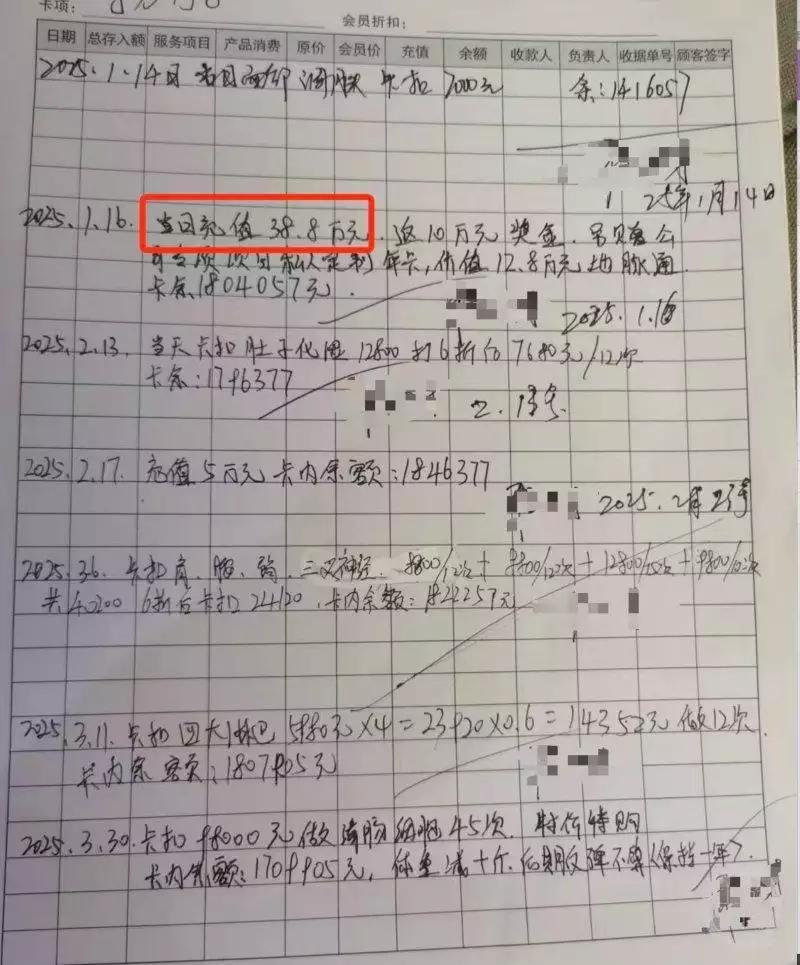 卡项:
会员折扣:
日期 总存入额 服务项目 产品消费 原价 会员价 充值 余额 收款人 负责人 收据单号 顾客签字
2025.1.14日 卡扣 7000元 余:1416057
25年1月14日
2025.1.16. 当日充值 38.8万元. 返10万元奖金.
可专项 私人定制年卡,价值12.8万元 地脉通.
卡余1804057元.
2025.1.16
2025.2.13. 当天卡扣肚子化湿 12800打6折后7680元/12次
卡余:1796377
2.13号.
2025.2.17. 充值5万元 卡内余额:1846377
2025.2月23号
2025.3.6. 卡扣肩.腰. 三叉神经. 9800/12次+9800/12次+12800/15次+9800/10次
共40200 6折后卡扣24120.卡内余额:1822257元
2025.3.11.卡扣四大淋巴 5980元×4=23920×0.6=14352元 做12次.
卡内余额:1807905元
2025.3.30.卡扣98000元做 45次. 特价特购
卡内余额:1709905元, 体重减十斤.后期反弹不算(保持一年).